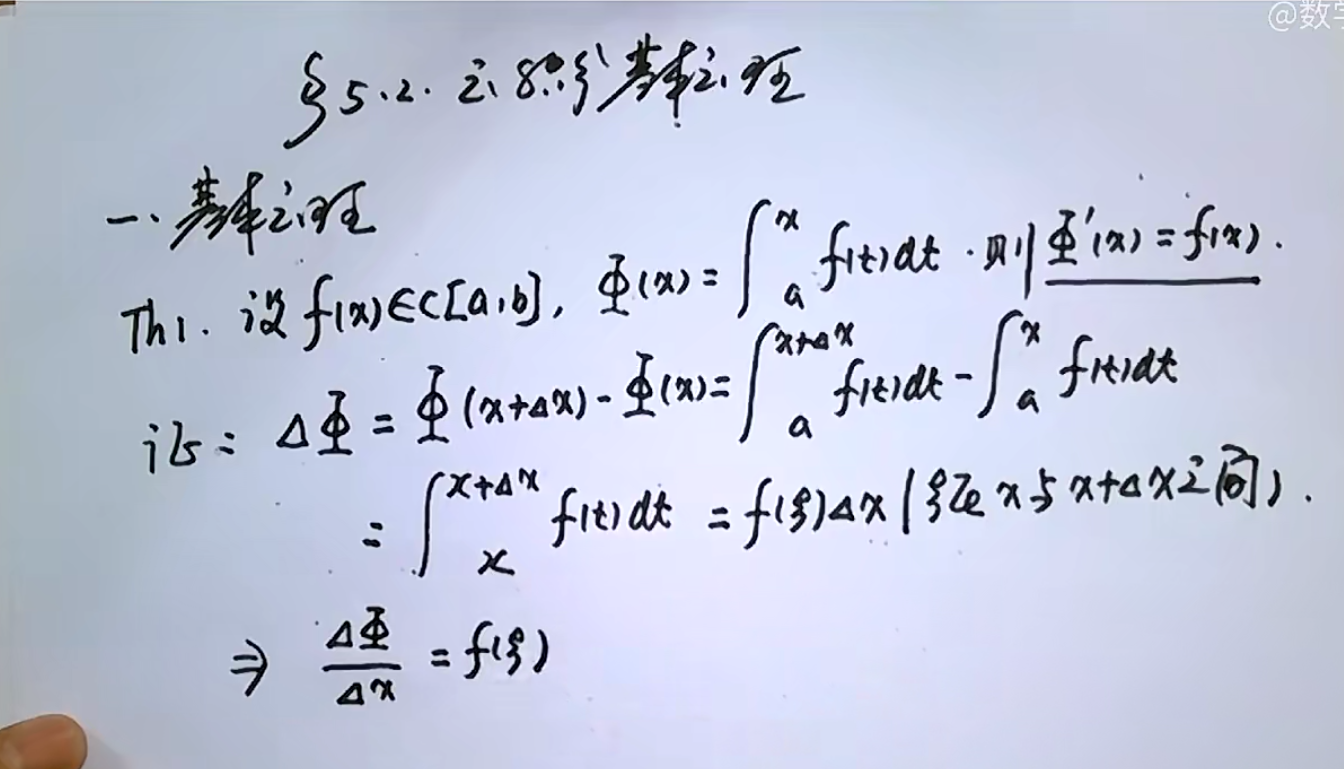 @数学
§5.2. 定积分基本定理
一. 基本定理
Th1. 设 f(x)∈C[a,b], Φ(x) = ∫_a^x f(t)dt. 则 Φ'(x) = f(x).
证: ΔΦ = Φ(x+Δx) - Φ(x) = ∫_a^{x+Δx} f(t)dt - ∫_a^x f(t)dt
= ∫_x^{x+Δx} f(t)dt = f(ξ)Δx (ξ在x与x+Δx之间).
⇒ ΔΦ/Δx = f(ξ)